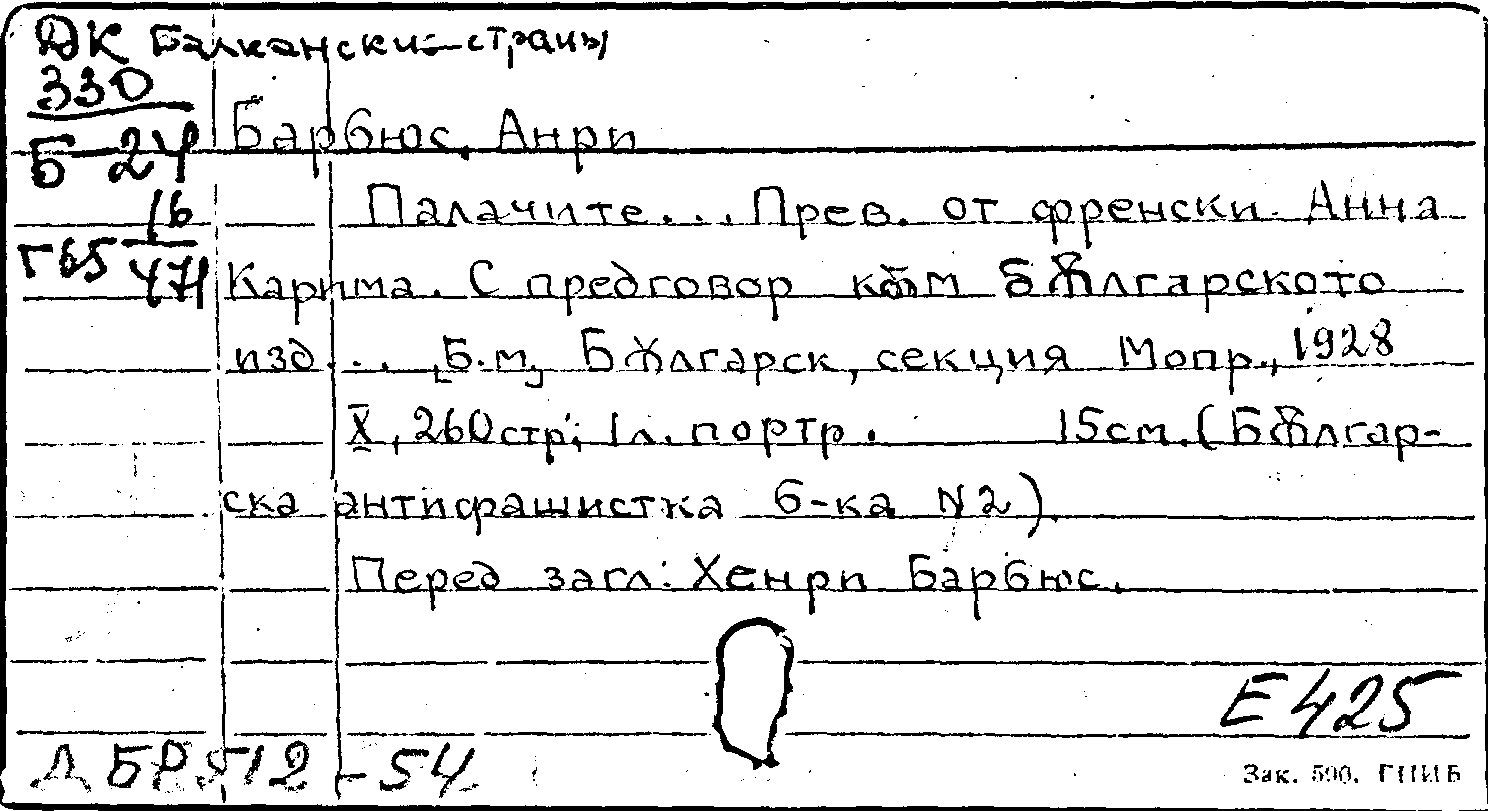 ДК Балкански-страны
330
Б-24 Барбюс, Анри
16 Палачите... Прев. от френски. Анна
Г65 471 Карима. С предговор към бѫлгарското
изд... [Б.м.] Бѫлгарск, секция Мопр., 1928
X, 260 стр; 1 л. портр. 15 см. (Бѫлгар-
ска антифашистка б-ка N2)
Перед загл: Хенри Барбюс.
E 425
ДБР 512-54
Зак. 500. ГПИБ